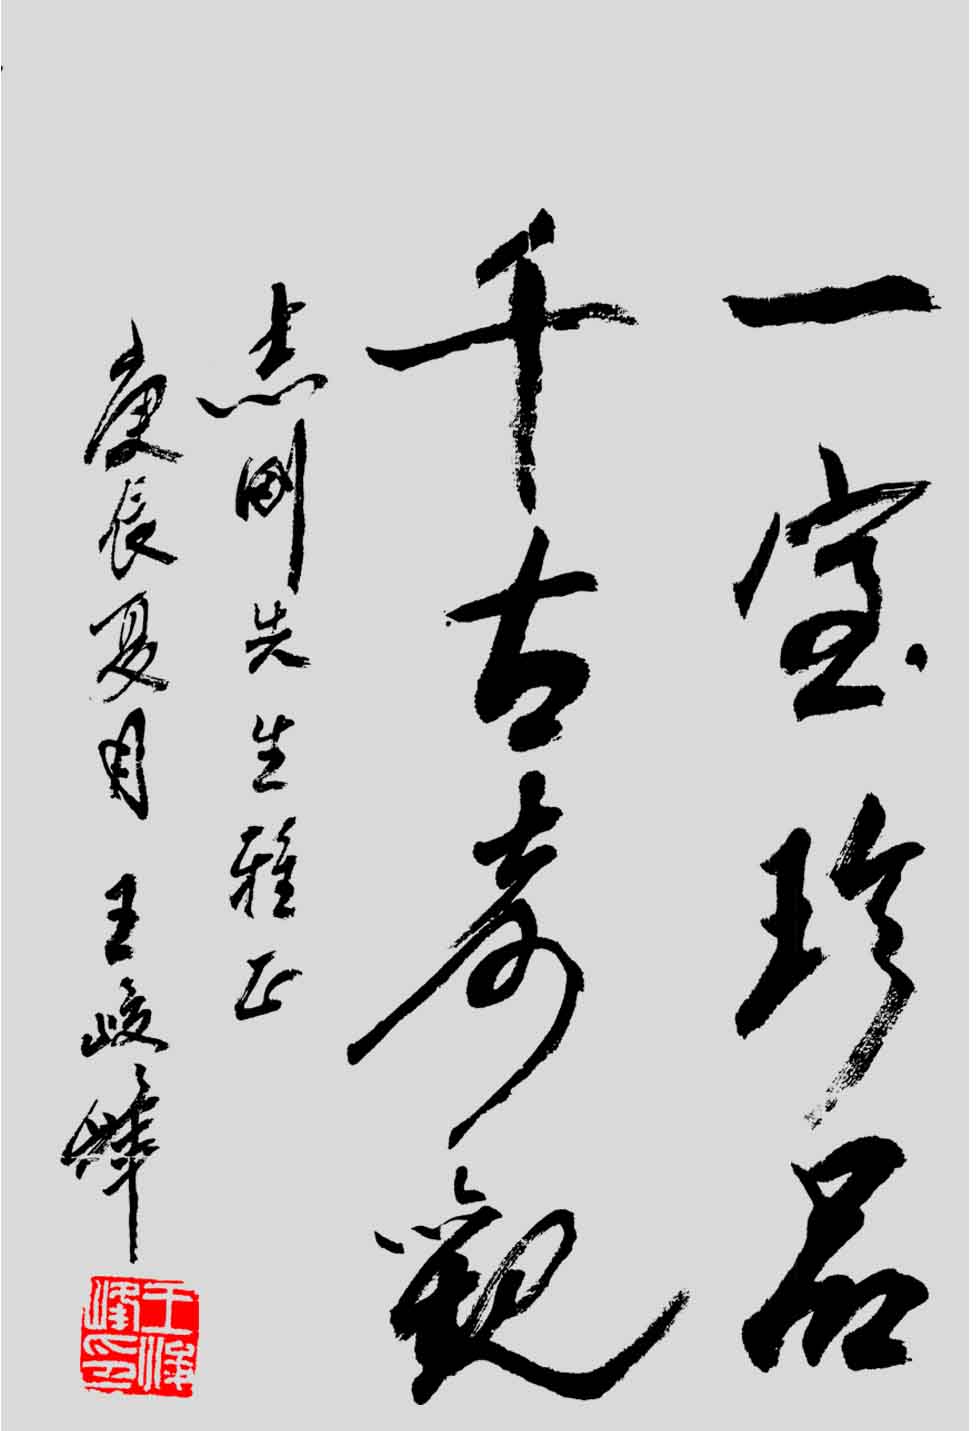 一室珍品
千古奇觀
志刚先生雅正
庚辰夏月 王峻峰
王峻峰印